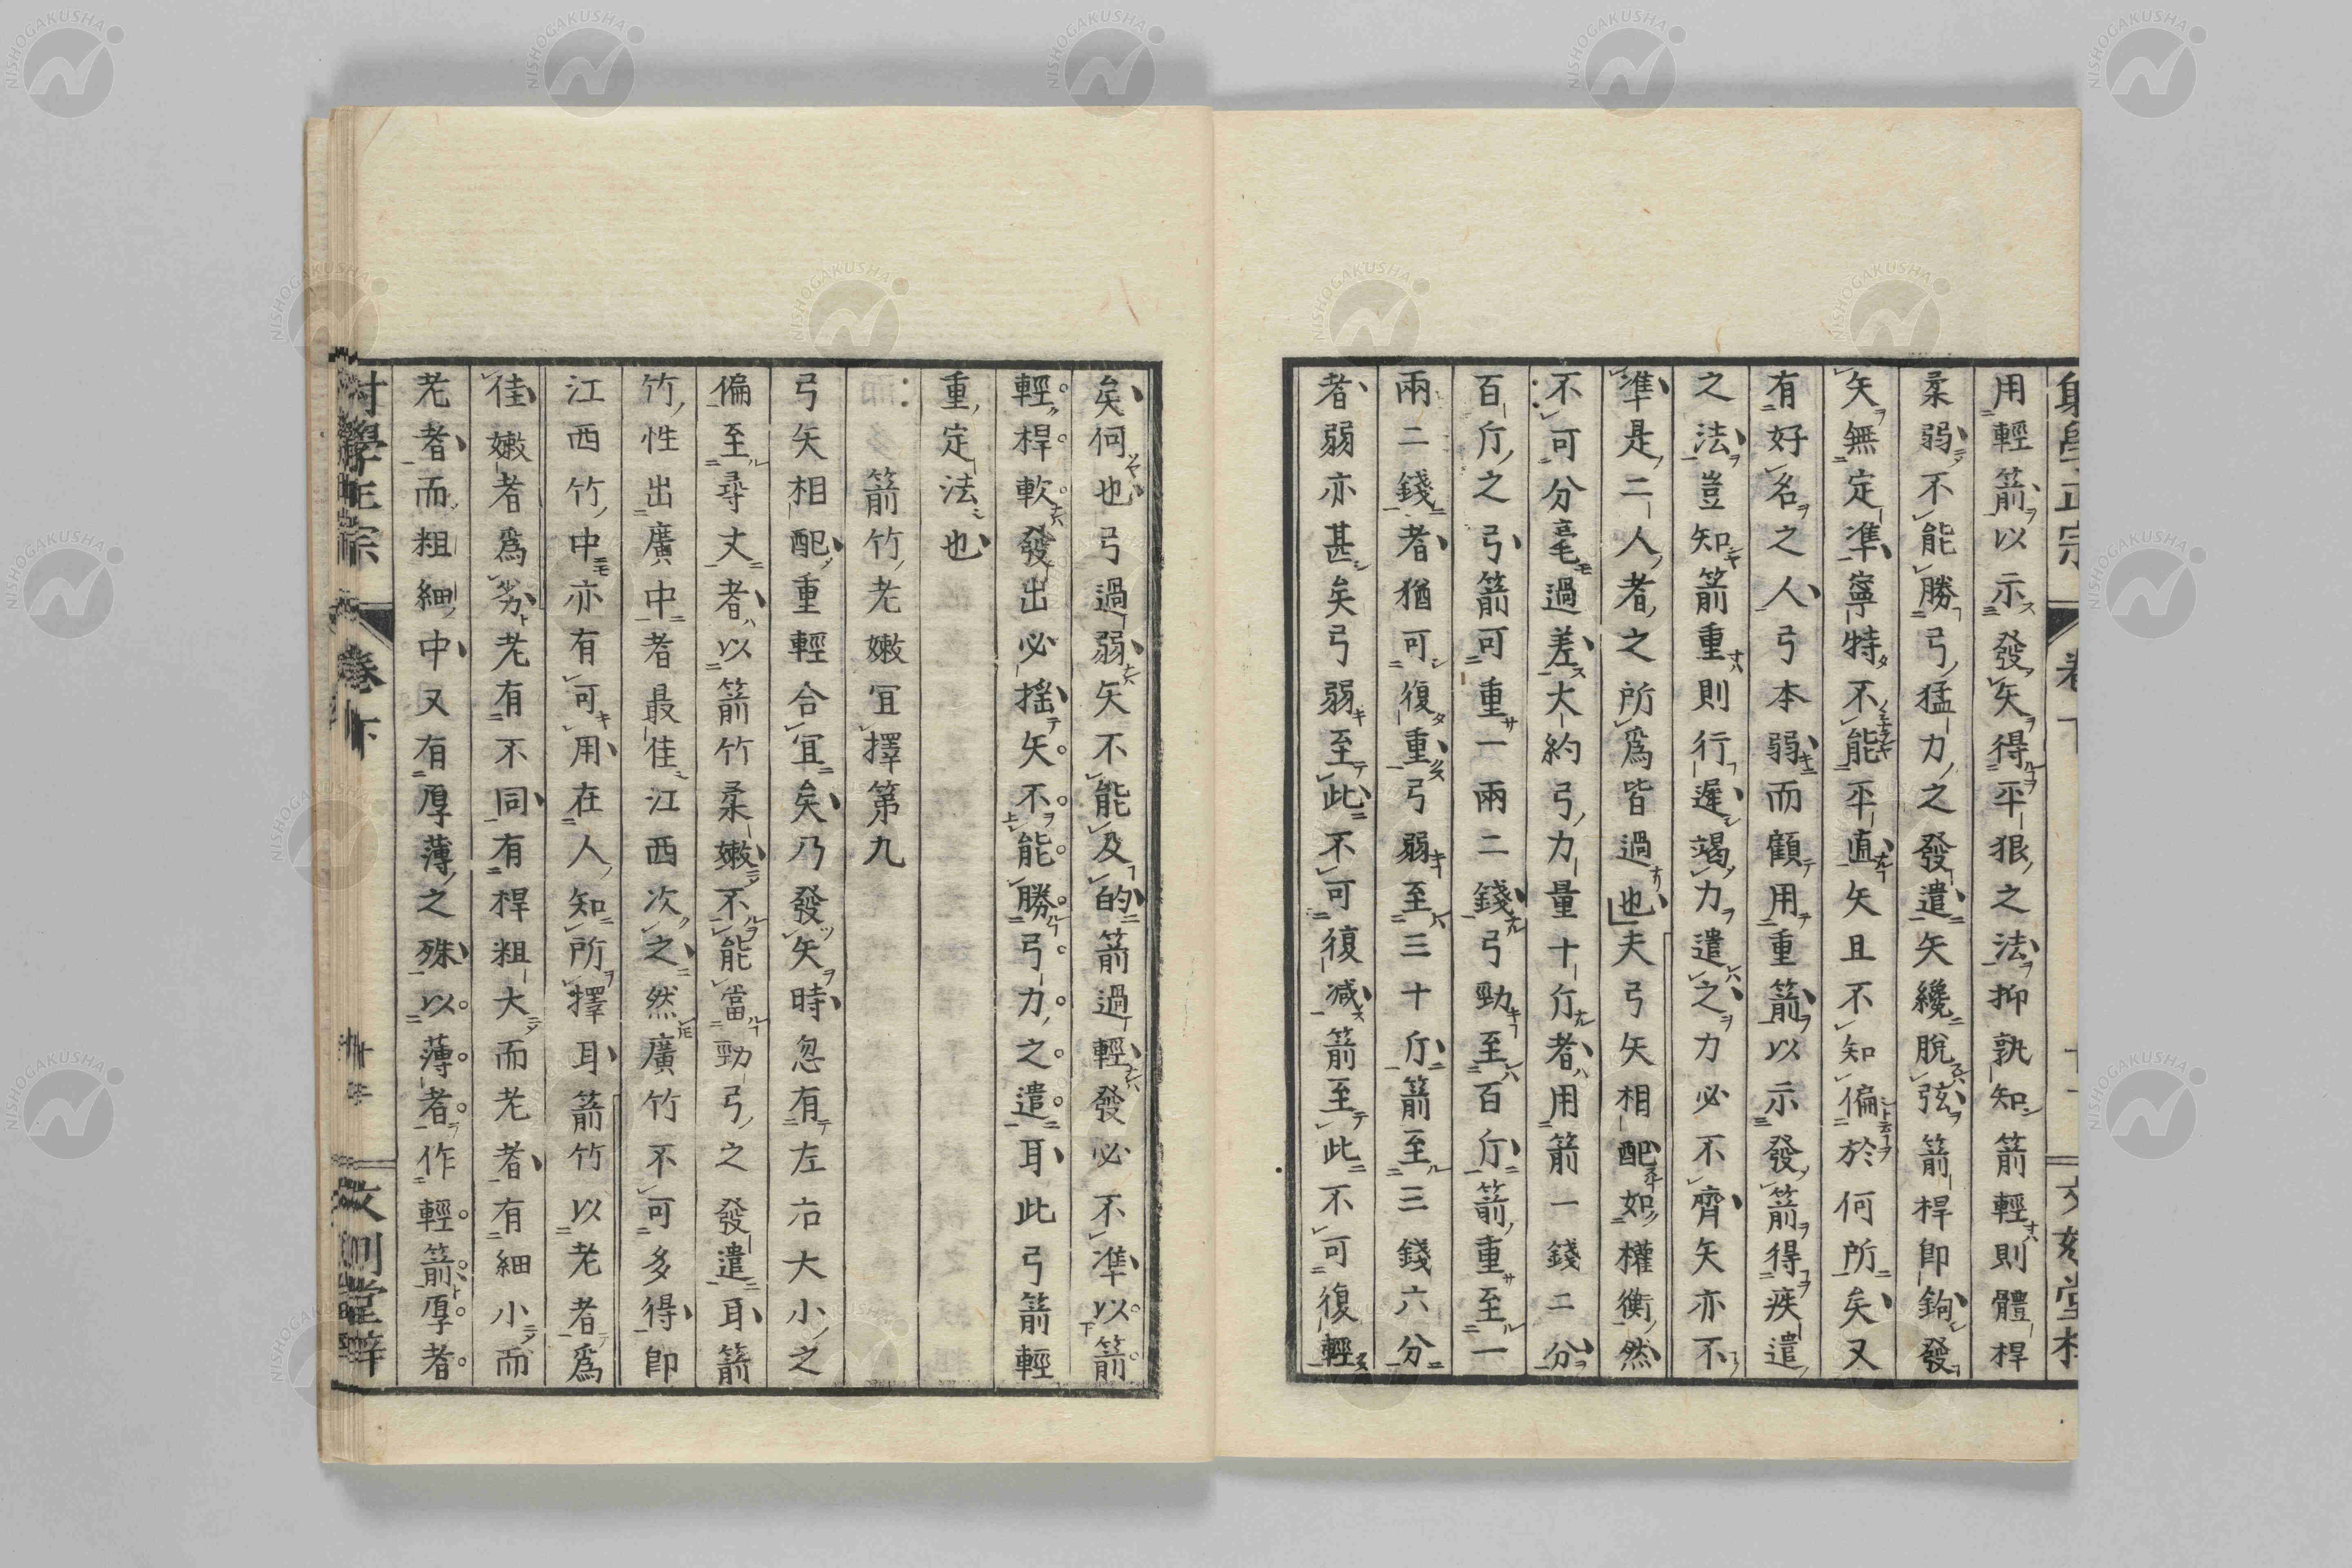 用輕箭以示發矢得平狠之法抑孰知箭輕則體桿
柔弱不能勝弓猛力之發遣矢纔脫弦箭桿即鉤發
矢無定準寧特不能平直矢且不知偏於何所矣又
有好名之人弓本弱而顧用重箭以示發箭得疾遣
之法豈知箭重則行遲竭力遣之力必不齊矢亦不
準是二人者之所爲皆過也夫弓矢相配如權衡然
不可分毫過差大約弓力量十斤者用箭一錢二分
百斤之弓箭可重一兩二錢弓勁至百斤箭重至一
兩二錢者猶可復重弓弱至三十斤箭至三錢六分
者弱亦甚矣弓弱至此不可復減箭至此不可復輕
矣何也弓過弱矢不能及的箭過輕發必不準以箭
輕桿軟發出必搖矢不能勝弓力之遣耳此弓箭輕
重定法也
箭竹老嫩宜擇第九
弓矢相配重輕合宜矣乃發矢時忽有左右大小之
偏至尋丈者以箭竹柔嫩不能當勁弓之發遣耳箭
竹性出廣中者最佳江西次之然廣竹不可多得即
江西竹中亦有可用在人知所擇耳箭竹以老者爲
佳嫩者爲劣老有不同有桿粗大而老者有細小而
老者而粗細中又有厚薄之殊以薄者作輕箭厚者
射學正宗 卷下
NISHOGAKUSHA